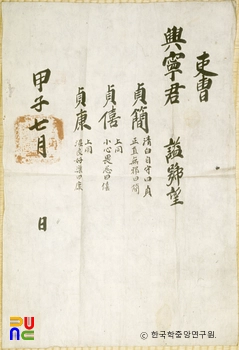 吏曹
興寧君 諡號望
貞簡 清白自守曰貞 正直無邪曰簡
貞僖 上同 小心畏忌曰僖
貞康 上同 溫良好樂曰康
甲子七月 日
© 한국학중앙연구원.